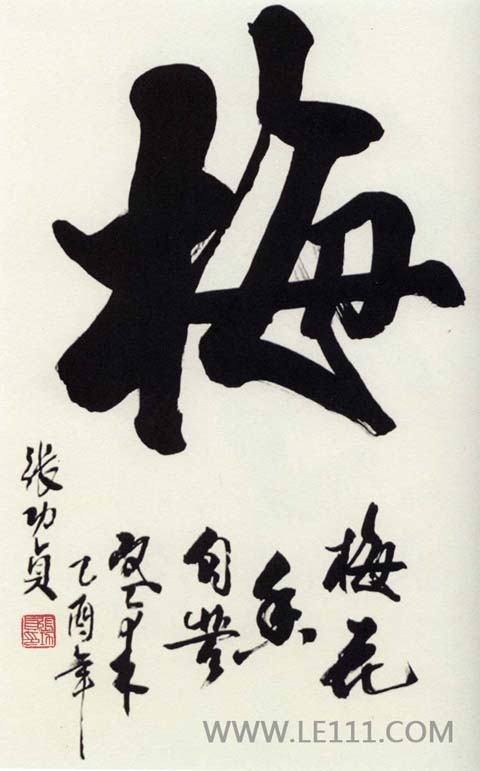 梅
梅花
香
自苦
寒来
乙酉年
張功貞
WWW.LE111.COM